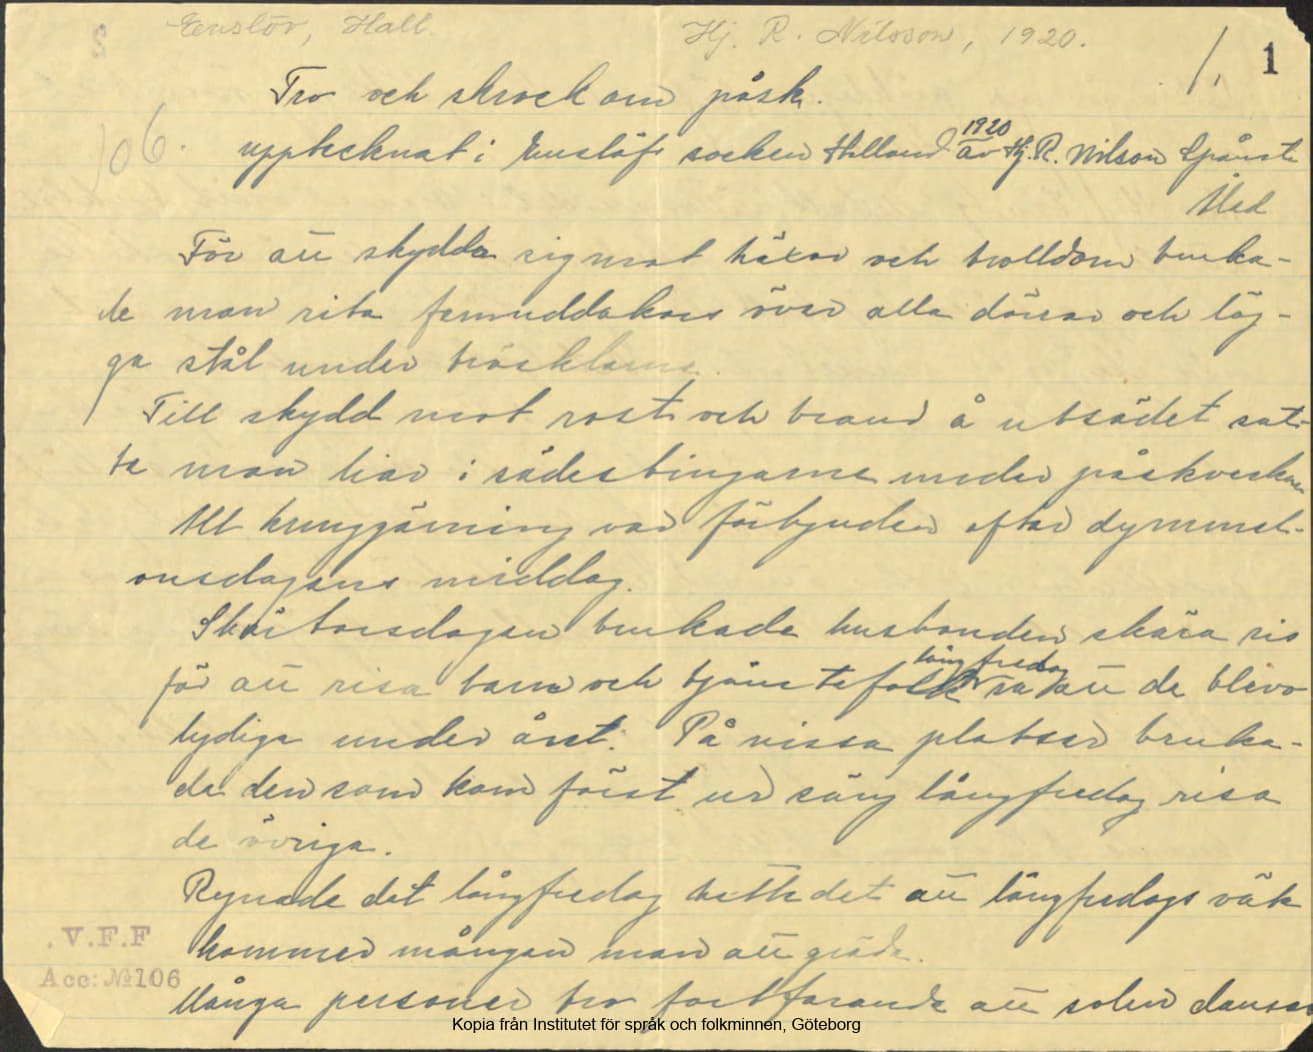 Eenslöv, Hall.
Hj. R. Nilsson, 1920.
1.
1
Tro och skrock om påsk.
106.
1920
upptecknat i Enslöfs socken Halland av Hj. R. Nilson
För att skydda sig mot häxor och trolldom bruka-
de man rita femuddakors över alla dörrar och läg-
ga stål under trösklarna.
Till skydd mot rost och brand å utsädet sat-
te man liar i sädesbingarna under påskveckan
All kringgärning var förbjuden efter dymmel-
onsdagens middag.
Skärtorsdagen brukade husbonden skära ris
långfredag
för att risa barn och tjänstefolk så att de blevo
lydiga under året. På vissa platser bruka-
de den som kom först ur säng långfredag risa
de övriga.
Regnade det långfredag hette det att långfredags väta
kommer mången man att gräda.
Många personer tro fortfarande att solen dansar
V.F.F
Acc: № 106
Kopia från Institutet för språk och folkminnen, Göteborg